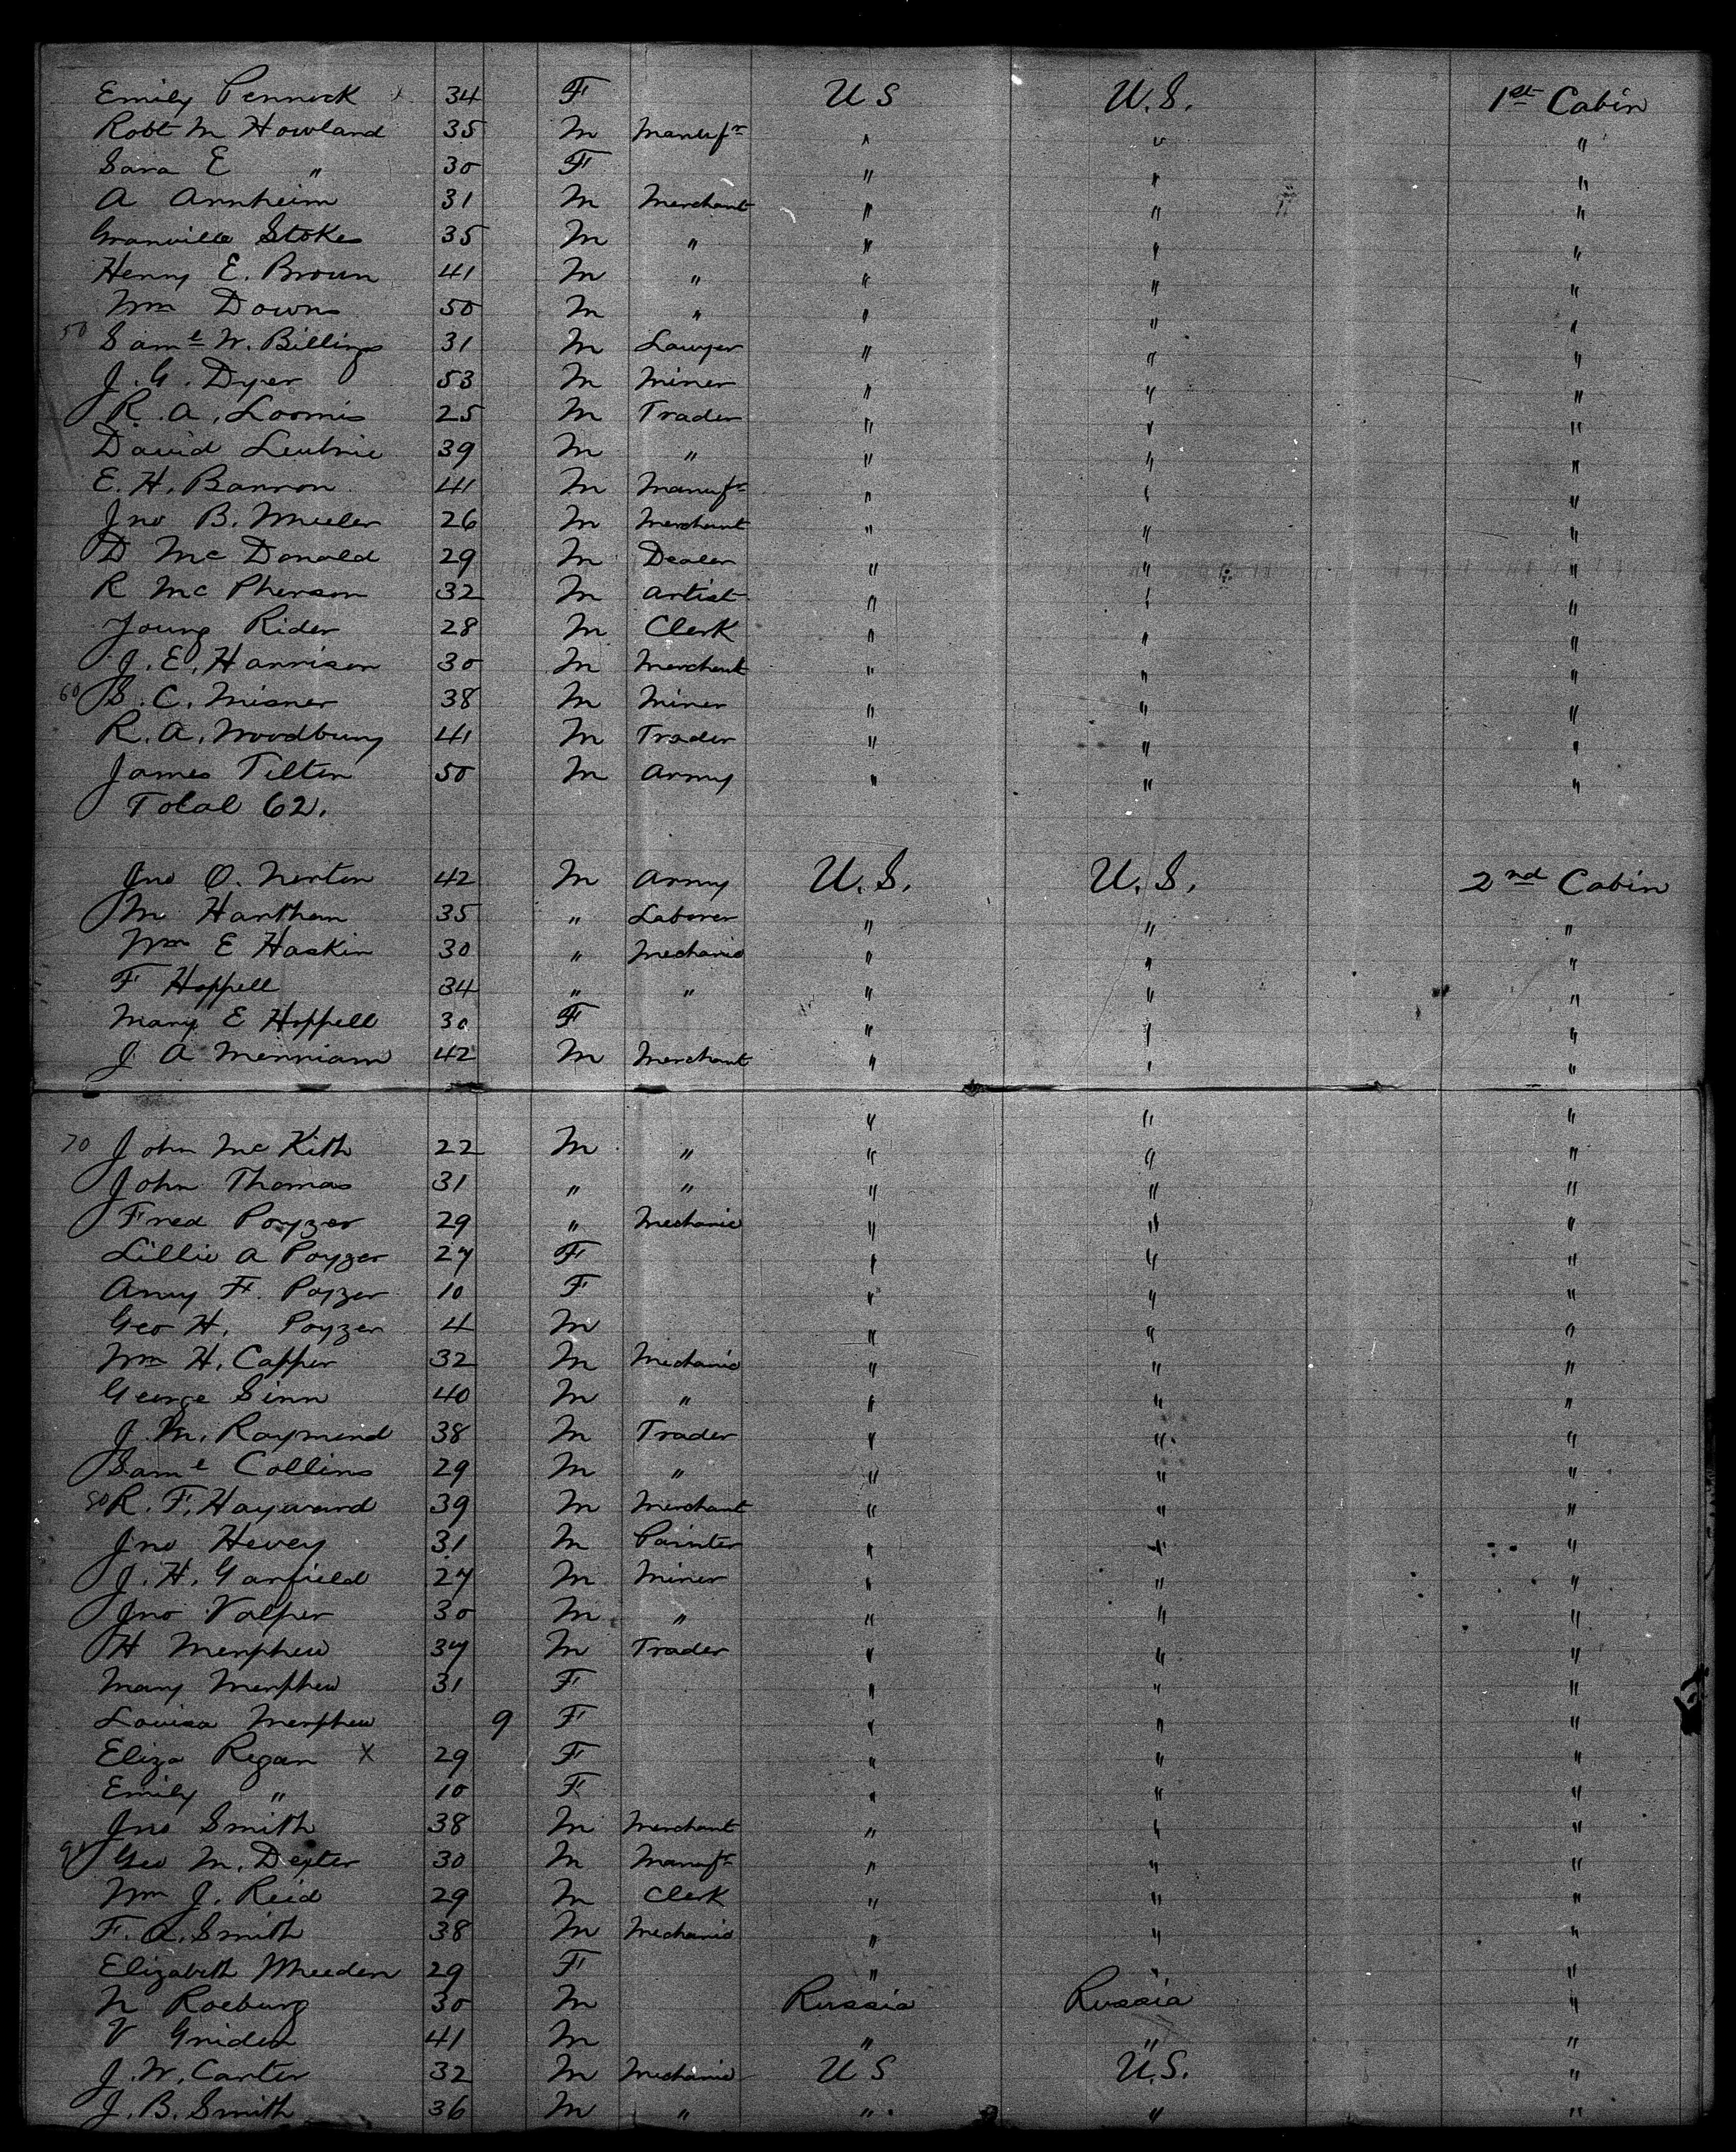 Emily Pennock 34 F U S U.S. 1st Cabin
Robt M Howland 35 M Manufr " " "
Sara E " 30 F " " "
A Arnheim 31 M Merchant " " "
Granville Stokes 35 M " " " "
Henry E. Brown 41 M " " " "
Wm Downs 50 M " " " "
50 Saml W. Billings 31 M Lawyer " " "
J. G. Dyer 53 M Miner " " "
R. A. Loomis 25 M Trader " " "
David 39 M " " " "
E. H. Barron 41 M Manufr " " "
Jno B. Wheeler 26 M Merchant " " "
D McDonald 29 M Dealer " " "
R McPherson 32 M Artist " " "
Young Rider 28 M Clerk " " "
J. E. Harrison 30 M Merchant " " "
60 S. C. Misner 38 M Miner " " "
R. A. Woodbury 41 M Trader " " "
James Tilton 50 M Army " " "
Total 62.
Jno O. Norton 42 M Army U.S. U.S. 2nd Cabin
M Hartham 35 " Laborer " " "
Wm E Haskin 30 " Mechanic " " "
F Hoppell 34 " " " " "
Mary E Hoppell 30 F " " "
J A Merriam 42 M Merchant " " "
" " "
70 John McKith 22 M " " " "
John Thomas 31 " " " " "
Fred Poyzer 29 " Mechanic " " "
Lillie A Poyzer 27 F " " "
Amy F. Poyzer 10 F " " "
Geo H. Poyzer 4 M " " "
Wm H. Capper 32 M Mechanic " " "
George Sinn 40 M " " " "
J. M. Raymond 38 M Trader " " "
Saml Collins 29 M " " " "
80 R. F. Hayward 39 M Merchant " " "
Jno Hevey 31 M Painter " " "
J. H. Garfield 27 M Miner " " "
Jno Valper 30 M " " " "
H Merphew 37 M Trader " " "
Mary Merphew 31 F " " "
Louisa Merphew 9 F " " "
Eliza Regan X 29 F " " "
Emily " 10 F " " "
Jno Smith 38 M Merchant " " "
90 Geo M. Dexter 30 M Manufr " " "
Wm J. Reid 29 M Clerk " " "
F. A. Smith 38 M Mechanic " " "
Elizabeth Wheeden 29 F " " "
N Roeburg 30 M Russia Russia "
V Griden 41 M " " "
J. W. Carter 32 M Mechanic U S U.S. "
J. B. Smith 36 M " " " "